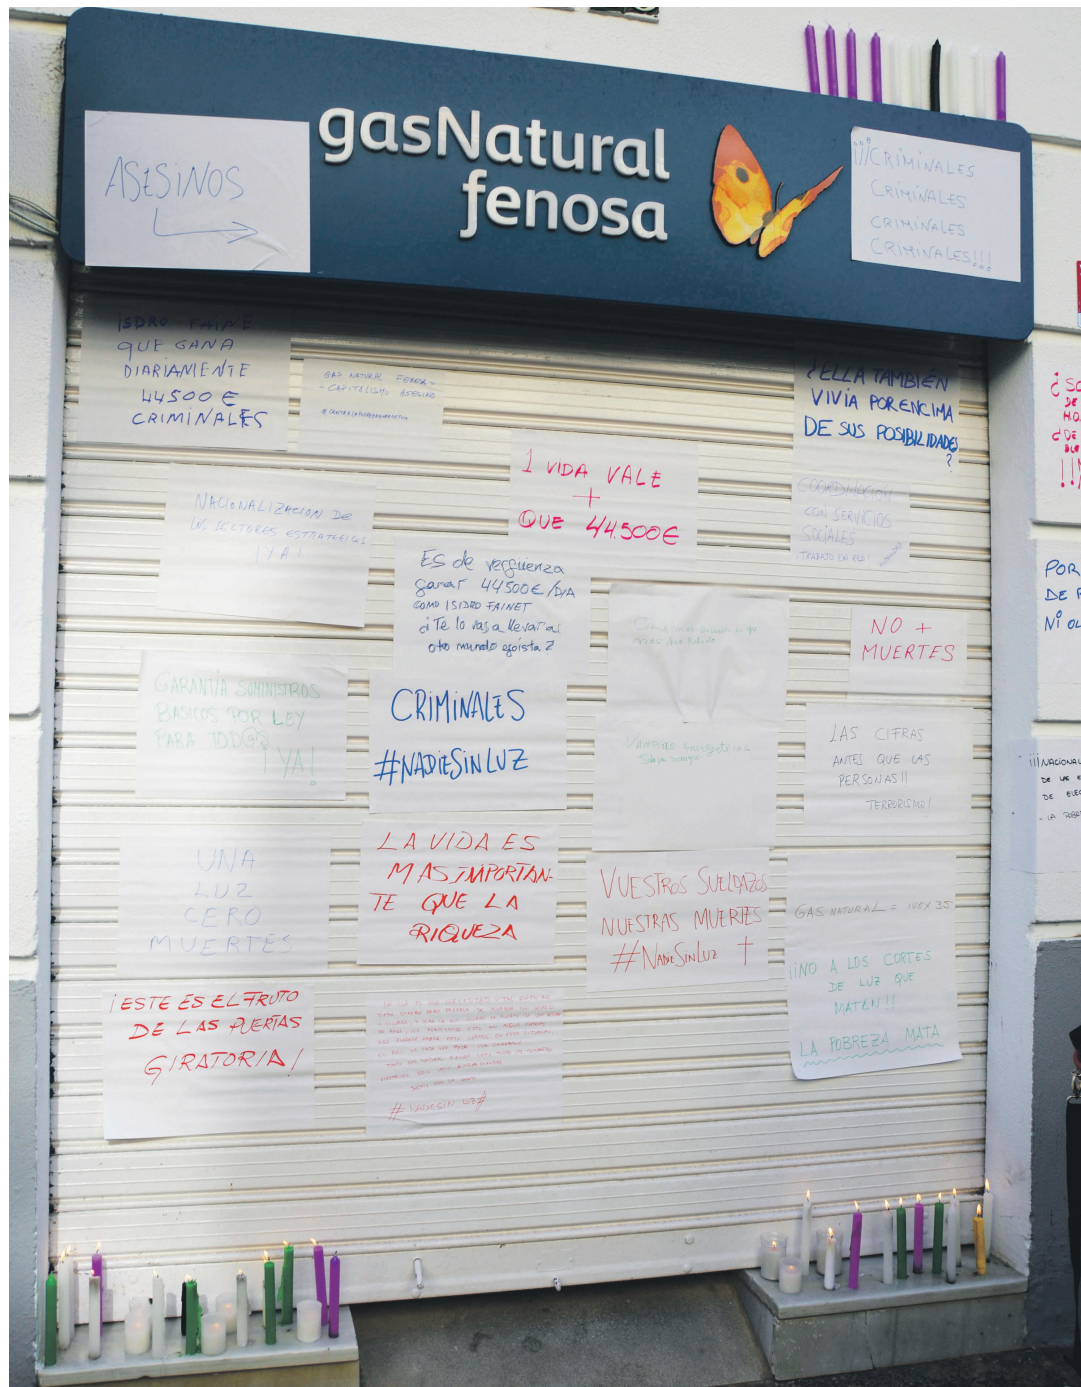 gasNatural
fenosa
ASESINOS
¡¡¡CRIMINALES
CRIMINALES
CRIMINALES
CRIMINALES!!!
ISDRO FAINE
QUE GANA
DIARIAMENTE
44500 €
CRIMINALES
GAS NATURAL FENOSA
= CAPITALISMO ASESINO
¿ELLA TAMBIÉN
VIVÍA POR ENCIMA
DE SUS POSIBILIDADES
?
1 VIDA VALE
+
QUE 44.500€
NACIONALIZACION DE
LOS SECTORES ESTRATEGICOS
¡YA!
COORDINACIÓN
CON SERVICIOS
SOCIALES
¡TRABAJO EN RED!
ES de vergüenza
ganar 44500€/DIA
COMO ISIDRO FAINET
¿Te lo vas a llevar al
otro mundo egoista?
NO +
MUERTES
GARANTÍA SUMINISTROS
BASICOS POR LEY
PARA TOD@S
¡YA!
CRIMINALES
#NADIESINLUZ
LAS CIFRAS
ANTES QUE LAS
PERSONAS!!
TERRORISMO!
UNA
LUZ
CERO
MUERTES
LA VIDA ES
MAS IMPORTAN-
TE QUE LA
RIQUEZA
VUESTROS SUELDAZOS
NUESTRAS MUERTES
#NADIESINLUZ †
GAS NATURAL = IBEX 35
¡¡NO A LOS CORTES
DE LUZ QUE
MATAN!!
LA POBREZA MATA
¡ESTE ES EL FRUTO
DE LAS PUERTAS
GIRATORIA!
# NADIESIN LUZ #
POR
DE
NI
¡¡¡NACIONAL
DE LAS
DE ELEC